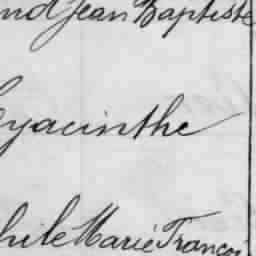 nd Jean Baptiste
yacinthe
hile Marie Françoi